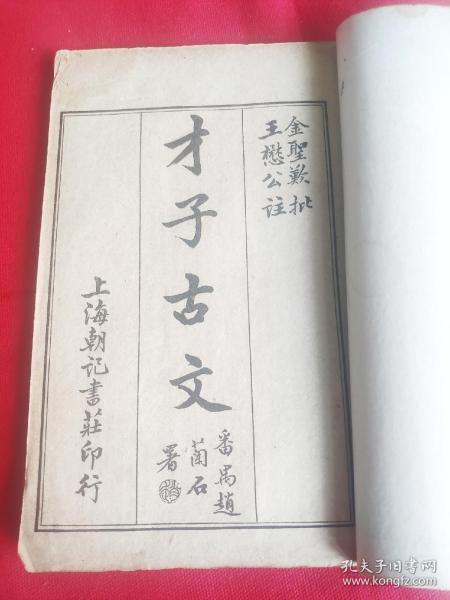 金聖歎批
王懋公註
才子古文
番禺趙
蘭石
署
上海朝記書莊印行
孔夫子旧书网
www.kongfz.com